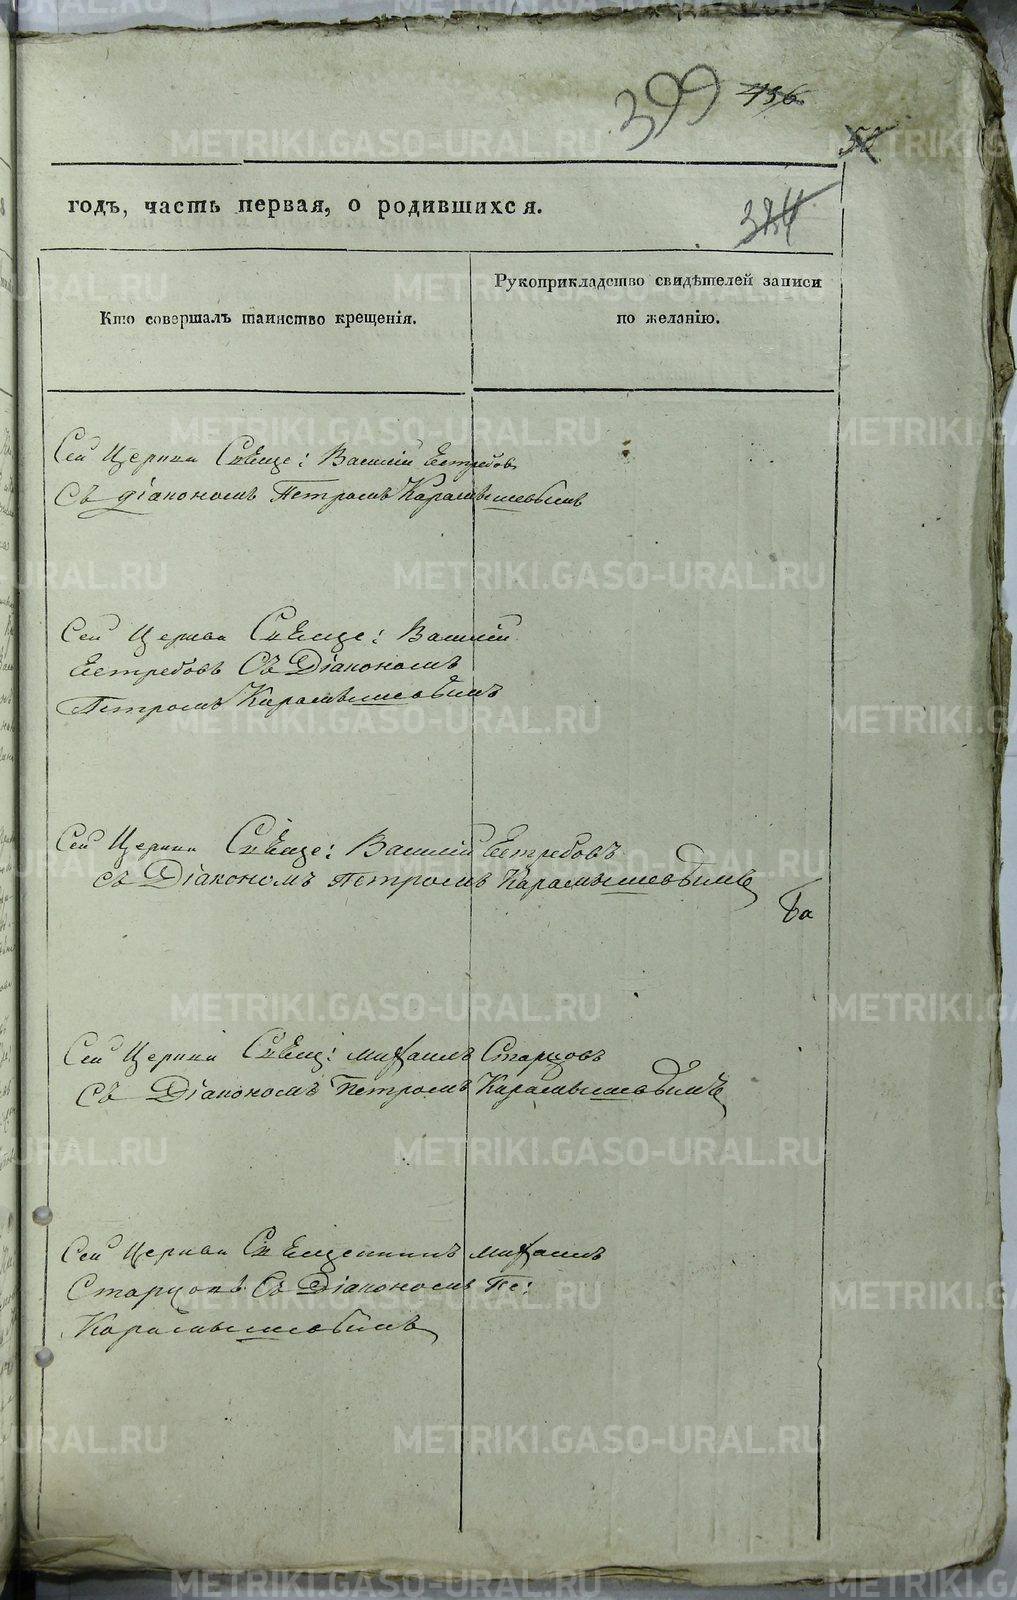 399 136
52
годъ, часть первая, о родившихся.
384
Кто совершалъ таинство крещенія.
Рукоприкладство свидѣтелей записи
по желанію.
Сей Церкви Свяще: Василій Ястребовъ
Съ діакономъ Петромъ Карамышевымъ
Сей Церкви Свяще: Василій
Ястребовъ Съ Діакономъ
Петромъ Карамышевымъ
Сей Церкви Свяще: Василій Ястребовъ
съ Діакономъ Петромъ Карамышевымъ
Сей Церкви Свящ: Михаилъ Старцовъ
Съ Діакономъ Петромъ Карамышевымъ
Сей Церкви Священникъ Михаилъ
Старцовъ Съ Діакономъ Пе:
Карамышевымъ
METRIKI.GASO-URAL.RU